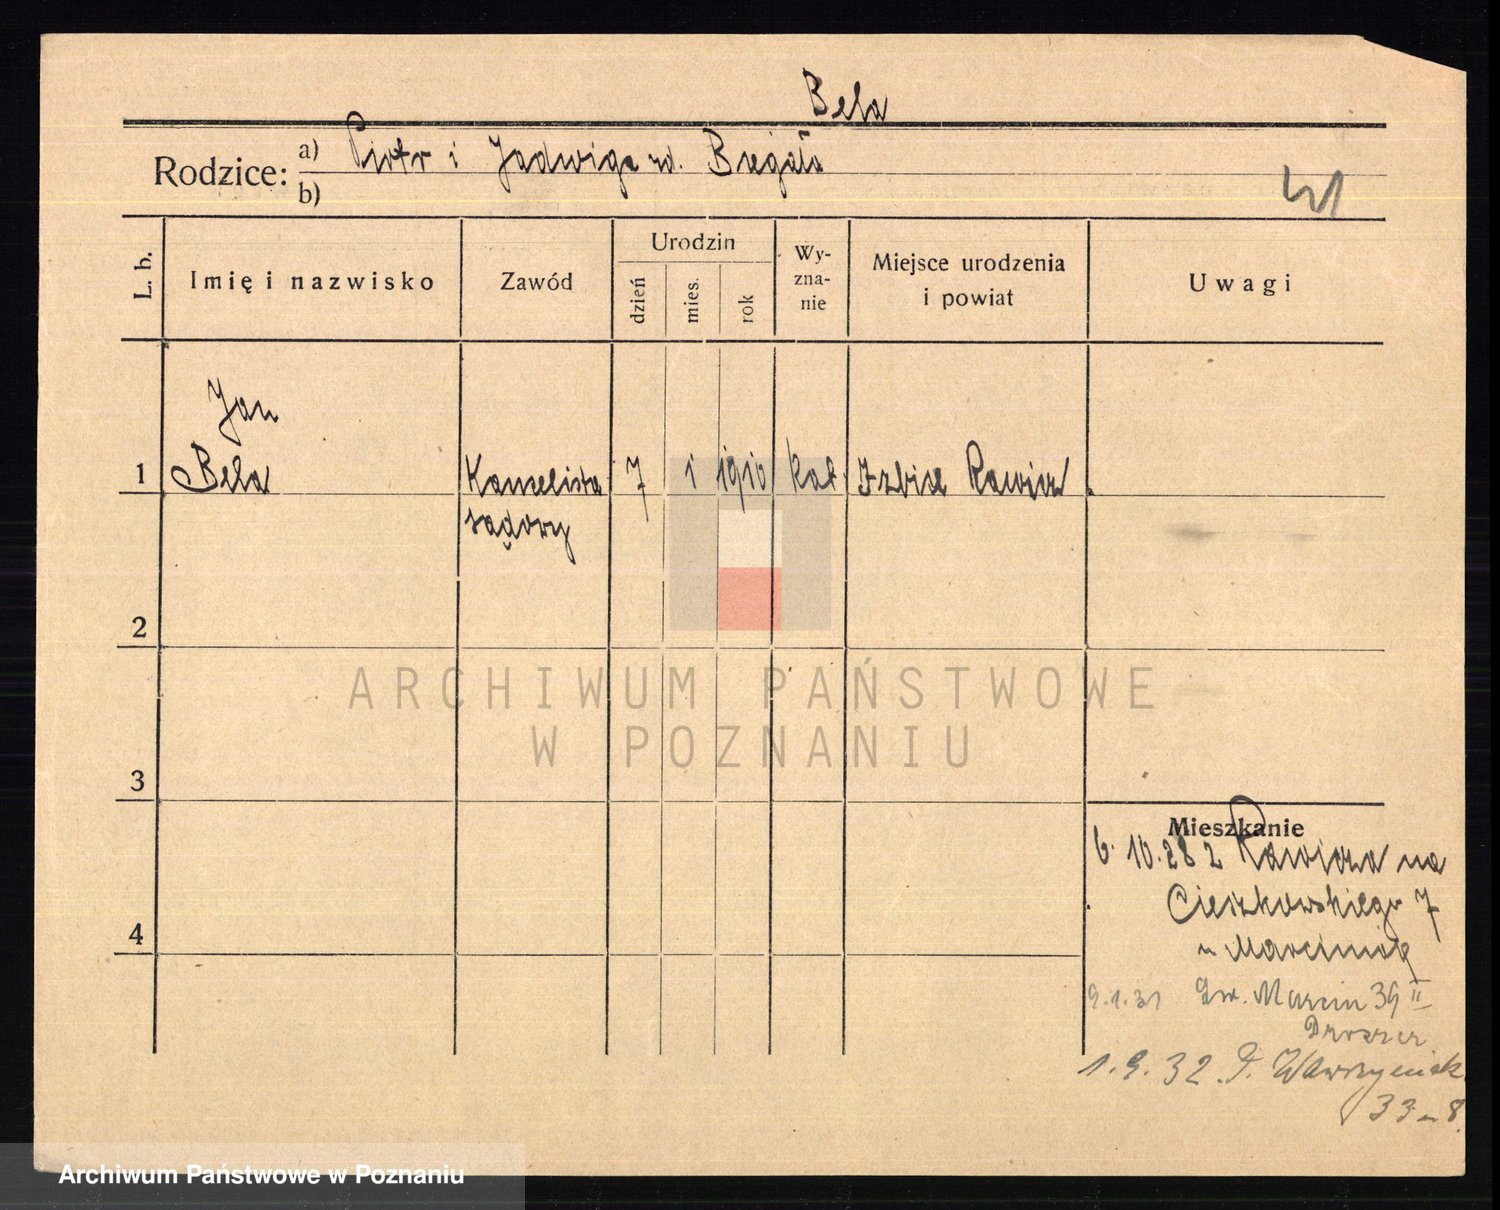 Bela
Rodzice: a) Piotr i Jadwiga zd. Biegała
b)
L. b.
Imię i nazwisko
Zawód
Urodzin
dzień
mies.
rok
Wy-
zna-
nie
Miejsce urodzenia
i powiat
Uwagi
Jan
1 Bela Kancelista 7 1 1910 kat. Izbice Rawicz
sądowy
2
ARCHIWUM PAŃSTWOWE
W POZNANIU
3
Mieszkanie
6.10.28 z Rawicza na
Cieszkowskiego 7
u Marciniak
4
9.1.31 Św. Marcin 39 II
1.9.32. Wawrzyniak
33 m 8.
Archiwum Państwowe w Poznaniu